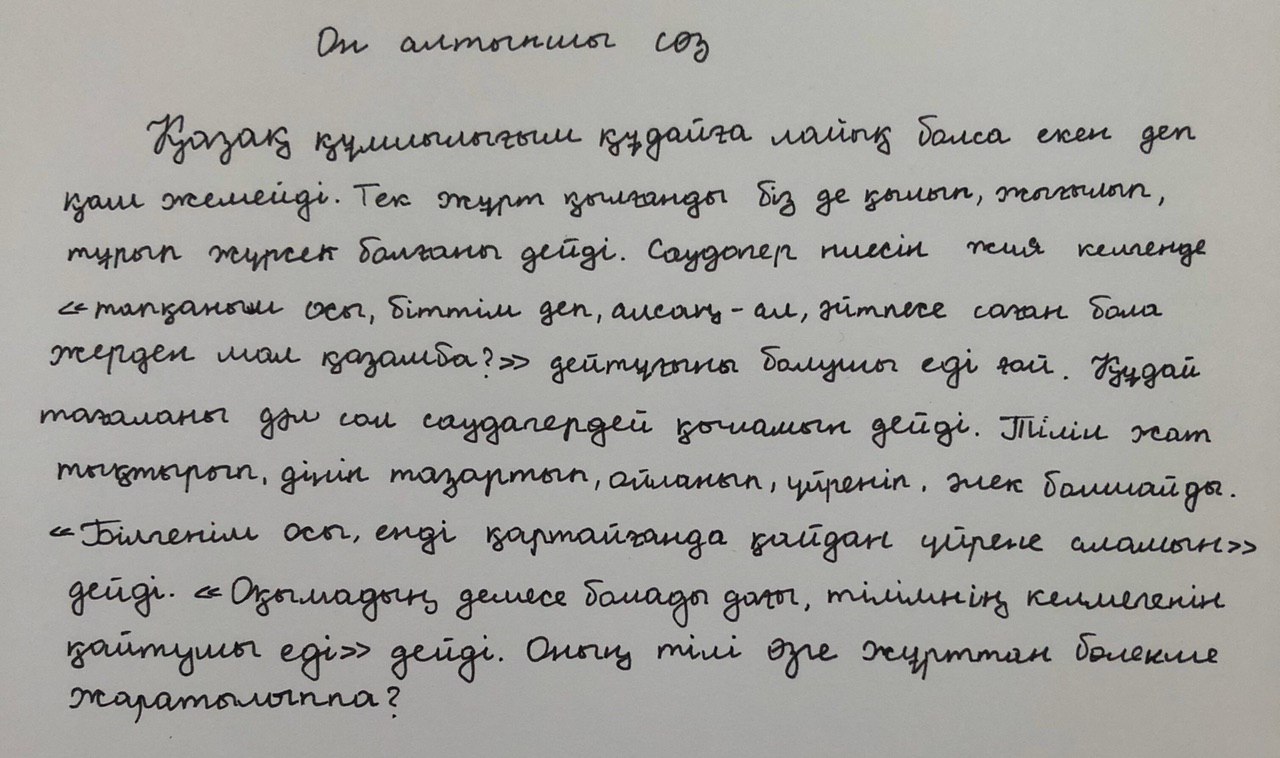 Он алтыншы сөз
Қазақ құлшылығым құдайға лайық болса екен деп
қам жемейді. Тек жұрт қылғанды біз де қылып, жығылып,
тұрып жүрсек болғаны дейді. Саудагер несін жия келгенде
«тапқаным осы, біттім деп, алсаң - ал, әйтпесе саған бола
жерден мал қазамба?» дейтұғыны болушы еді ғой. Құдай
тағаланы дәл сол саудагердей қыламын дейді. Тілін жат
тықтырып, дінін тазартып, ойланып, үйреніп, әлек болмайды.
«Білгенім осы, енді қартайғанда қайдан үйрене аламын»
дейді. «Оқымадың демесе болады дағы, тілімнің келмегенін
қайтуші еді» дейді. Оның тілі өзге жұрттан бөлекше
жаратылыппа?